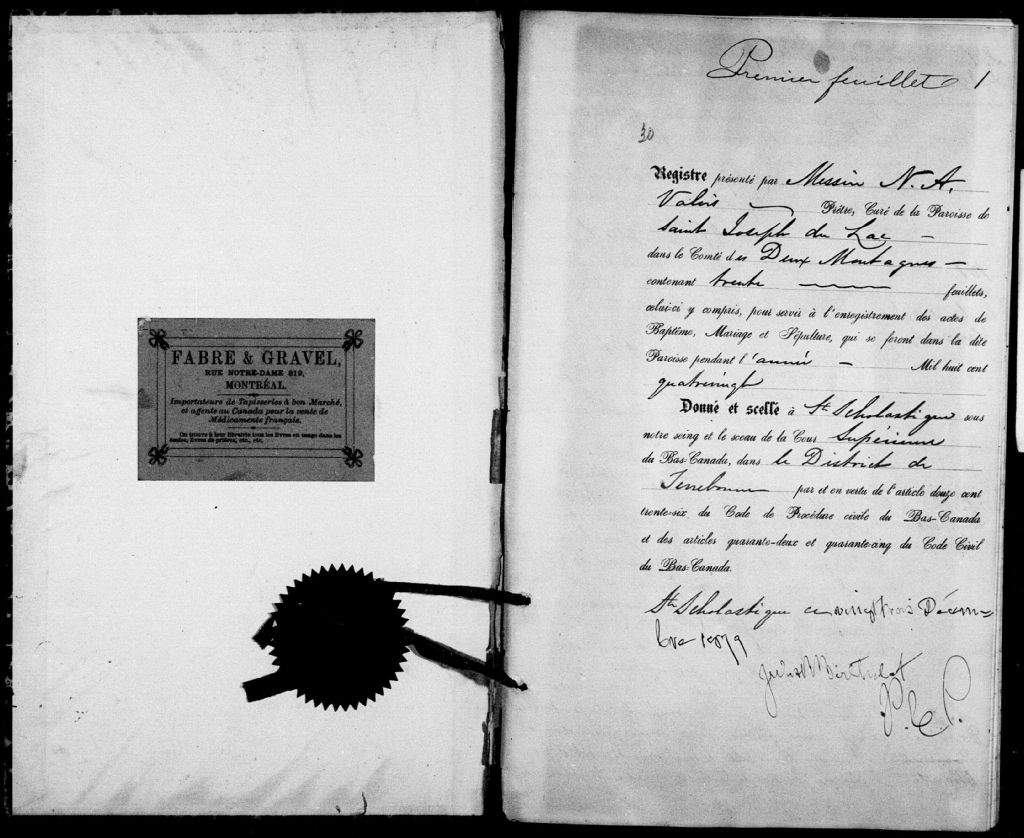 FABRE & GRAVEL,
RUE NOTRE-DAME 219,
MONTRÉAL.
Importateurs de Tapisseries à bon Marché,
et agents au Canada pour la vente de
Médicaments français.
On trouve à leur librairie tous les livres en usage dans les
écoles, livres de prières, etc., etc.
Premier feuillet 1
30
Registre présenté par Messire N. A.
Valois Prêtre, Curé de la Paroisse de
saint Joseph du Lac
dans le Comté des Deux Montagnes
contenant trente feuillets,
celui-ci y compris, pour servir à l'enregistrement des actes de
Baptême, Mariage et Sépulture, qui se feront dans la dite
Paroisse pendant l'année Mil huit cent
quatrevingt
Donné et scellé à Ste Scholastique sous
notre seing et le sceau de la Cour Supérieure
du Bas-Canada, dans le District de
Terrebonne par et en vertu de l'article douze cent
trente-six du Code de Procédure civile du Bas-Canada
et des articles quarante-deux et quarante-cinq du Code Civil
du Bas-Canada.
Ste Scholastique ce vingt trois Décem-
bre 1879
P. C. S.